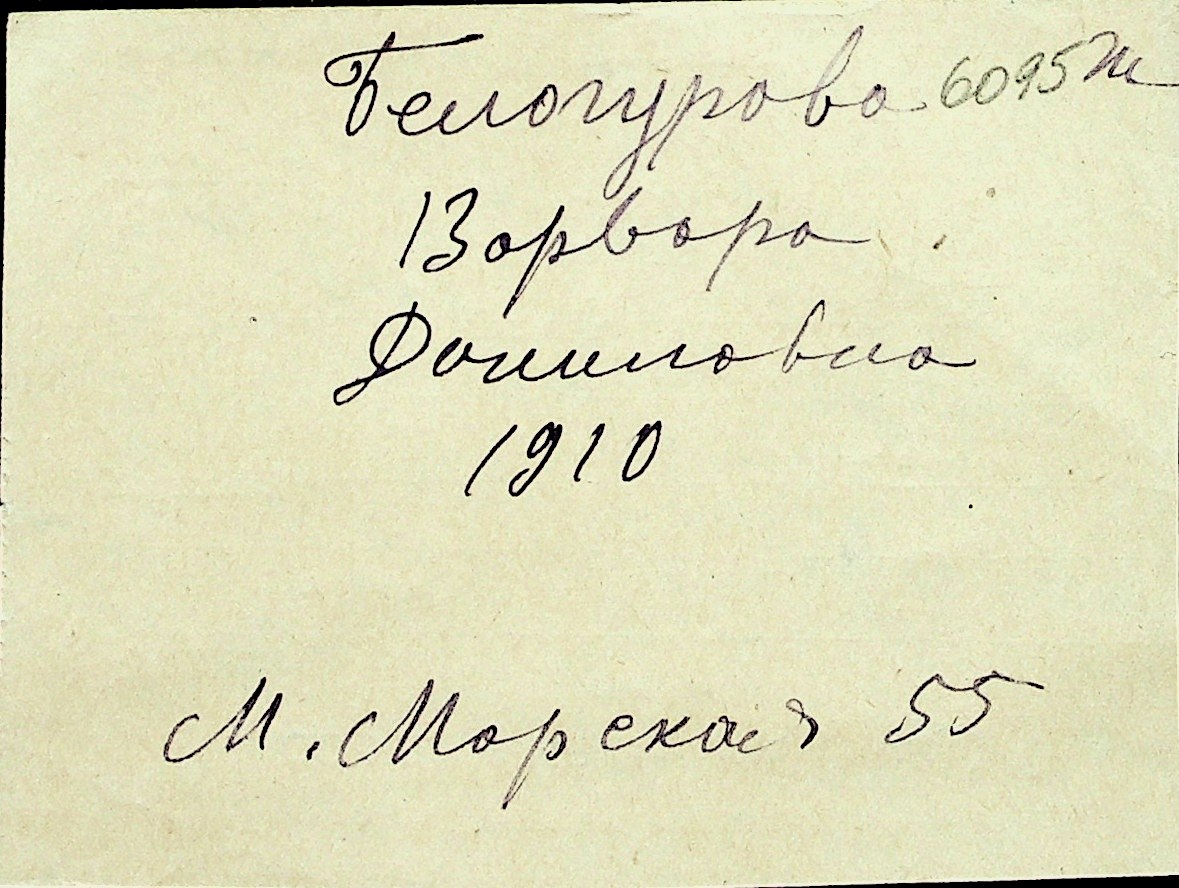 Белогурова 6095
Варвара
Даниловна
1910
М. Морская 55